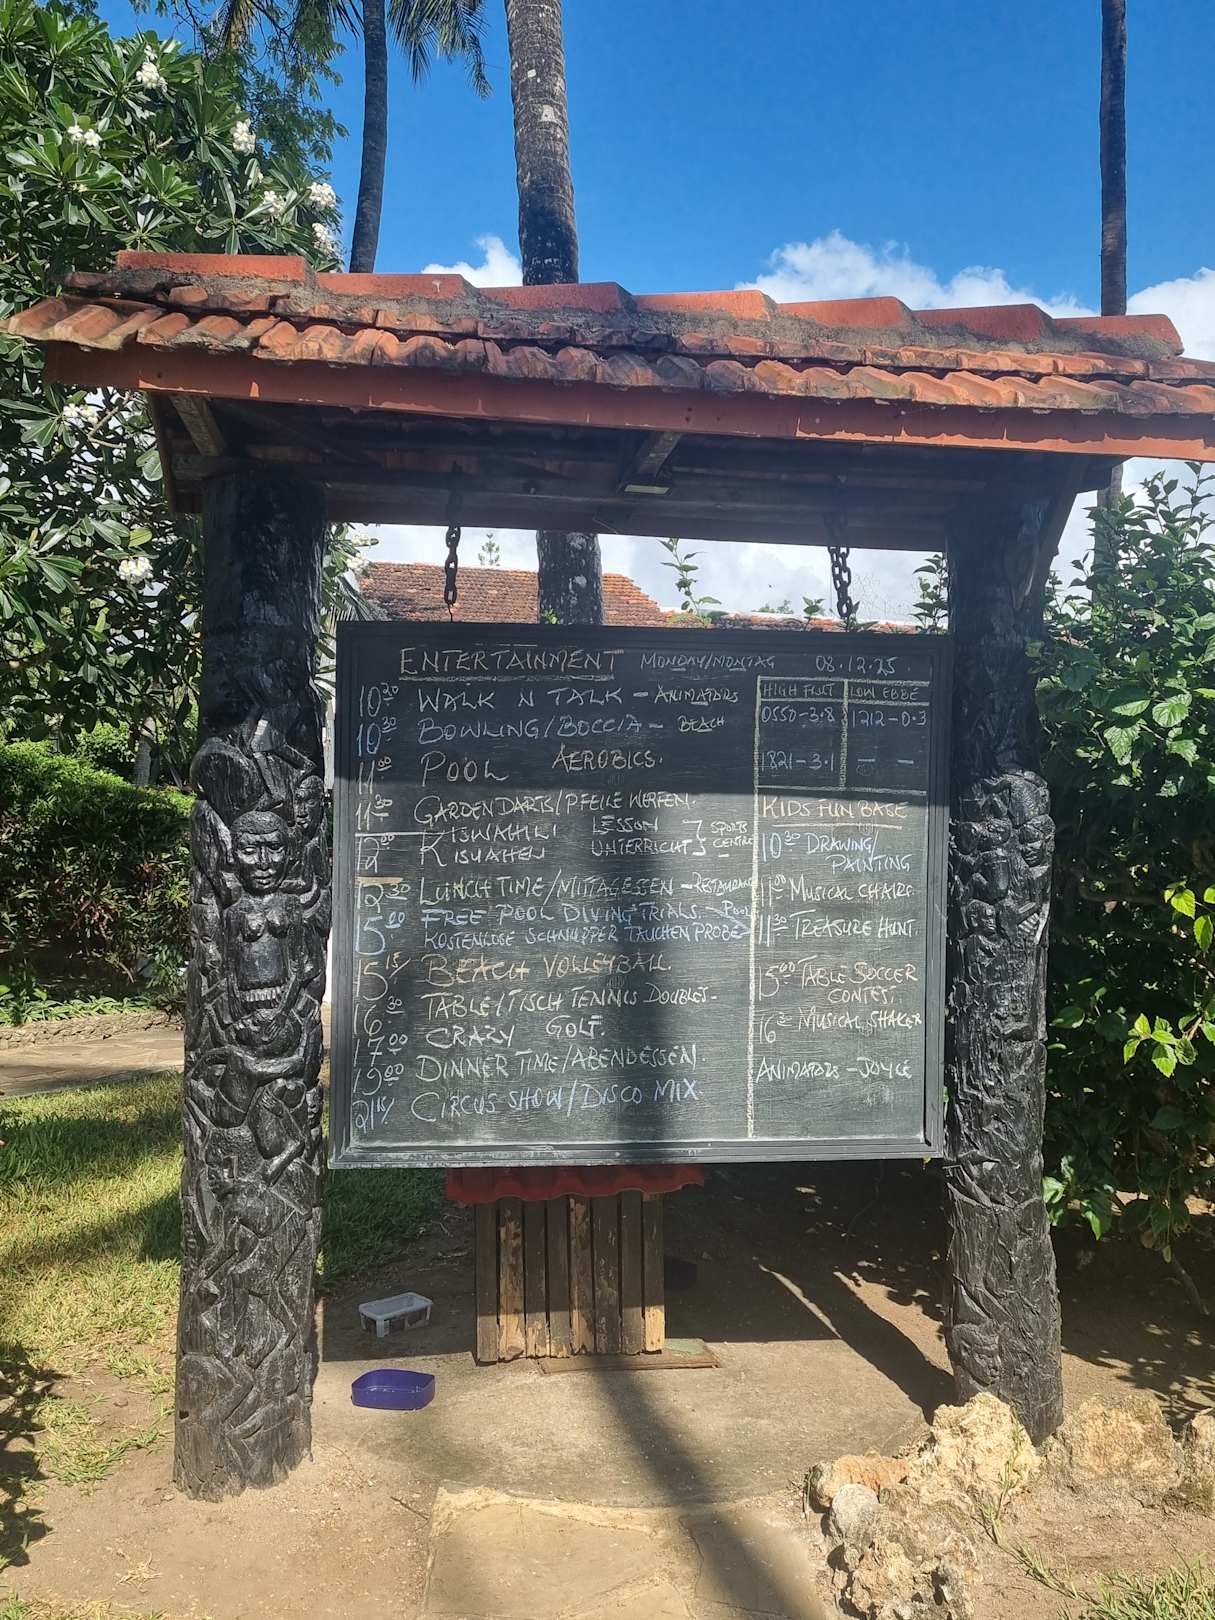 ENTERTAINMENT MONDAY/MONTAG 08.12.25.
10 20 WALK N TALK - ANIMATORS
10 30 BOWLING/BOCCIA - BEACH
11 00 POOL AEROBICS.
11 30 GARDEN DARTS/PFEILE WERFEN.
12 00 KISWAHILI LESSON
KISUAHELI UNTERRICHT } SPORTS CENTRE
12 30 LUNCH TIME/MITTAGESSEN - RESTAURANT
15 00 FREE POOL DIVING TRIALS. - POOL
KOSTENLOSE SCHNUPPER TAUCHEN PROBE
15 15 BEACH VOLLEYBALL.
16 30 TABLE/TISCH TENNIS DOUBLES-
17 00 CRAZY GOLF.
19 00 DINNER TIME/ABENDESSEN.
21 15 CIRCUS SHOW/DISCO MIX.
HIGH FLUT LOW EBBE
0550-3.8 1212-0.3
1821-3.1 — —
KIDS FUN BASE
10 30 DRAWING/
PAINTING
11 00 MUSICAL CHAIRS.
11 30 TREASURE HUNT.
15 00 TABLE SOCCER
CONTEST.
16 30 MUSICAL SHAKER
ANIMATORS - JOYCE